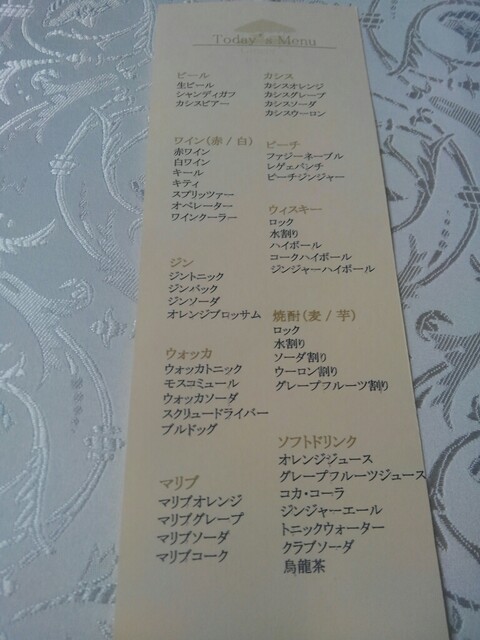 Today's Menu
ビール
生ビール
シャンディガフ
カシスビアー
ワイン(赤/白)
赤ワイン
白ワイン
キール
キティ
スプリッツァー
オペレーター
ワインクーラー
ジン
ジントニック
ジンバック
ジンソーダ
オレンジブロッサム
ウォッカ
ウォッカトニック
モスコミュール
ウォッカソーダ
スクリュードライバー
ブルドッグ
マリブ
マリブオレンジ
マリブグレープ
マリブソーダ
マリブコーク
カシス
カシスオレンジ
カシスグレープ
カシスソーダ
カシスウーロン
ピーチ
ファジーネーブル
レゲェパンチ
ピーチジンジャー
ウィスキー
ロック
水割り
ハイボール
コークハイボール
ジンジャーハイボール
焼酎(麦/芋)
ロック
水割り
ソーダ割り
ウーロン割り
グレープフルーツ割り
ソフトドリンク
オレンジジュース
グレープフルーツジュース
コカ・コーラ
ジンジャーエール
トニックウォーター
クラブソーダ
烏龍茶